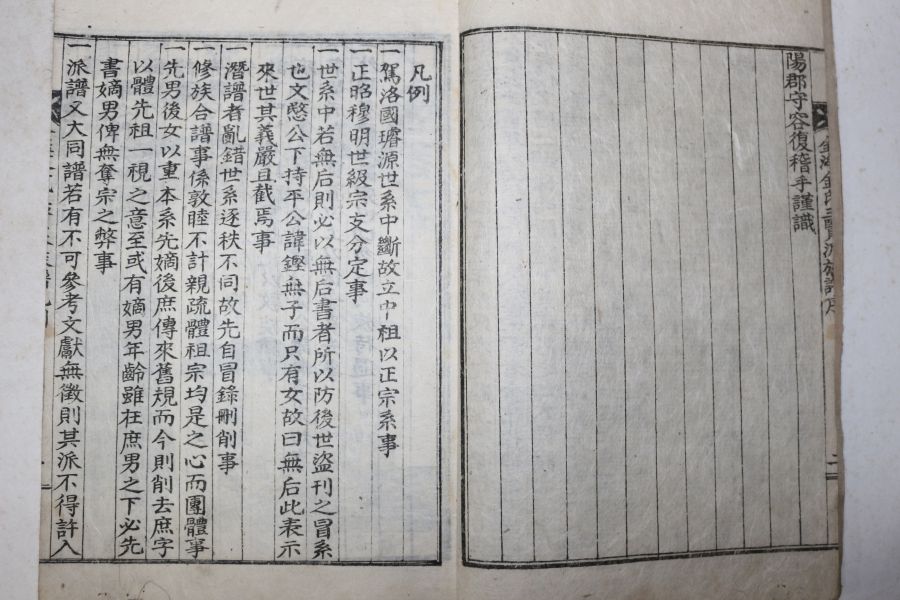 陽郡守容復稽手謹識
凡例
一駕洛國璿源世系中斷故立中祖以正宗系事
一正昭穆明世級宗支分定事
一世系中若無后則必以無后書者所以防後世盜刊之冒系
也文愍公下持平公諱鏗無子而只有女故曰無后此表示
來世其義嚴且截焉事
一潛譜者亂錯世系逐秩不同故先自冒錄刪削事
一修族合譜事係敦睦不計親疏體祖宗均是之心而團體事
一先男後女以重本系先嫡後庶傳來舊規而今則削去庶字
以體先祖一視之意至或有嫡男年齡雖在庶男之下必先
書嫡男俾無奪宗之弊事
一派譜又大同譜若有不可參考文獻無徵則其派不得許入